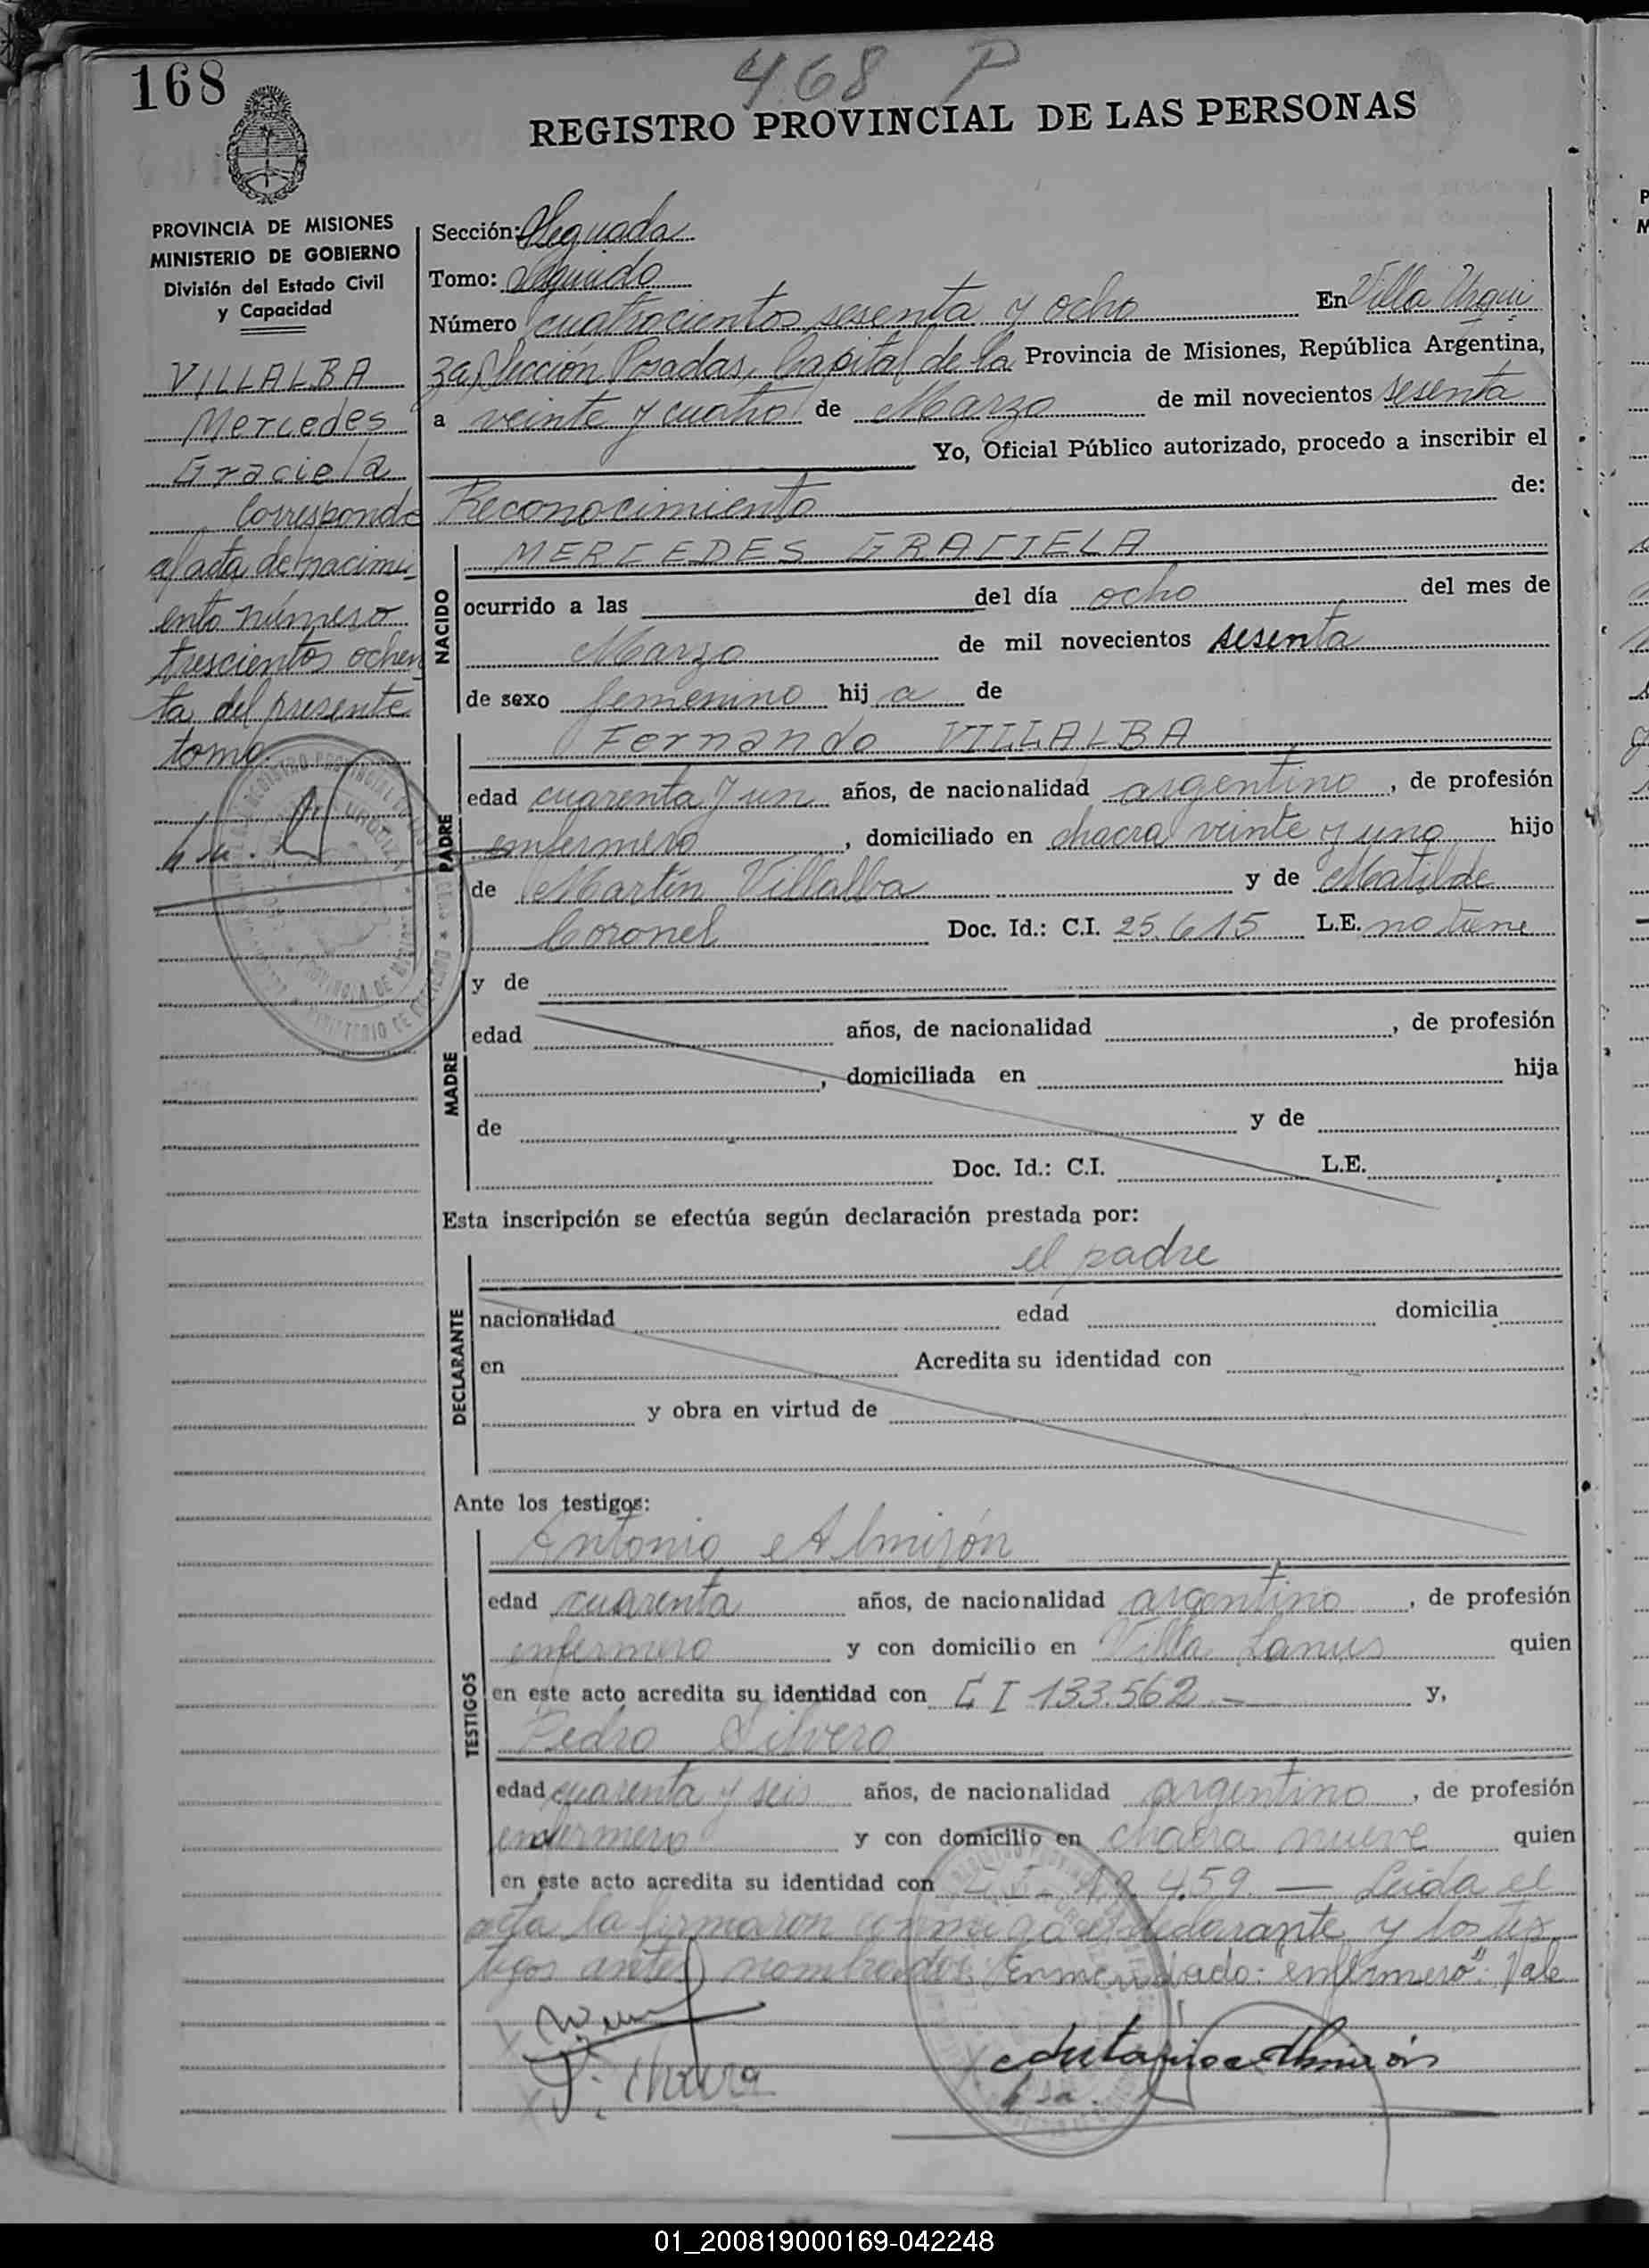 168
468 P
REGISTRO PROVINCIAL DE LAS PERSONAS
PROVINCIA DE MISIONES
MINISTERIO DE GOBIERNO
División del Estado Civil
y Capacidad
VILLALBA
Mercedes
Graciela
Corresponde
al acta de nacimi-
ento número
trescientos ochen
ta del presente
tomo.
Sección: Segunda
Tomo: Segundo
Número cuatrocientos sesenta y ocho En Villa Urqui
za, Sección Posadas, Capital de la Provincia de Misiones, República Argentina,
a veinte y cuatro de Marzo de mil novecientos sesenta
Yo, Oficial Público autorizado, procedo a inscribir el
Reconocimiento de:
NACIDO
MERCEDES GRACIELA
ocurrido a las del día ocho del mes de
Marzo de mil novecientos sesenta
de sexo femenino hij a de
PADRE
Fernando VILLALBA
edad cuarenta y un años, de nacionalidad argentino, de profesión
enfermero, domiciliado en chacra veinte y uno hijo
de Martín Villalba y de Matilde
Coronel Doc. Id.: C.I. 25.615 L.E. no tiene
MADRE
y de
edad años, de nacionalidad , de profesión
, domiciliada en hija
de y de
Doc. Id.: C.I. L.E.
Esta inscripción se efectúa según declaración prestada por:
DECLARANTE
el padre
nacionalidad edad domicilia
en Acredita su identidad con
y obra en virtud de
Ante los testigos:
TESTIGOS
Antonio Almirón
edad cuarenta años, de nacionalidad argentino, de profesión
enfermero y con domicilio en Villa Lanus quien
en este acto acredita su identidad con C I 133.562 — y,
Pedro Silvero
edad cuarenta y seis años, de nacionalidad argentino, de profesión
enfermero y con domicilio en chacra nueve quien
en este acto acredita su identidad con C.I. 459 — Leída el
acta la firmaron conmigo el declarante y los tes
tigos antes nombrados Enmendado: "enfermero": Vale
Antonio Almirón
01_200819000169-042248